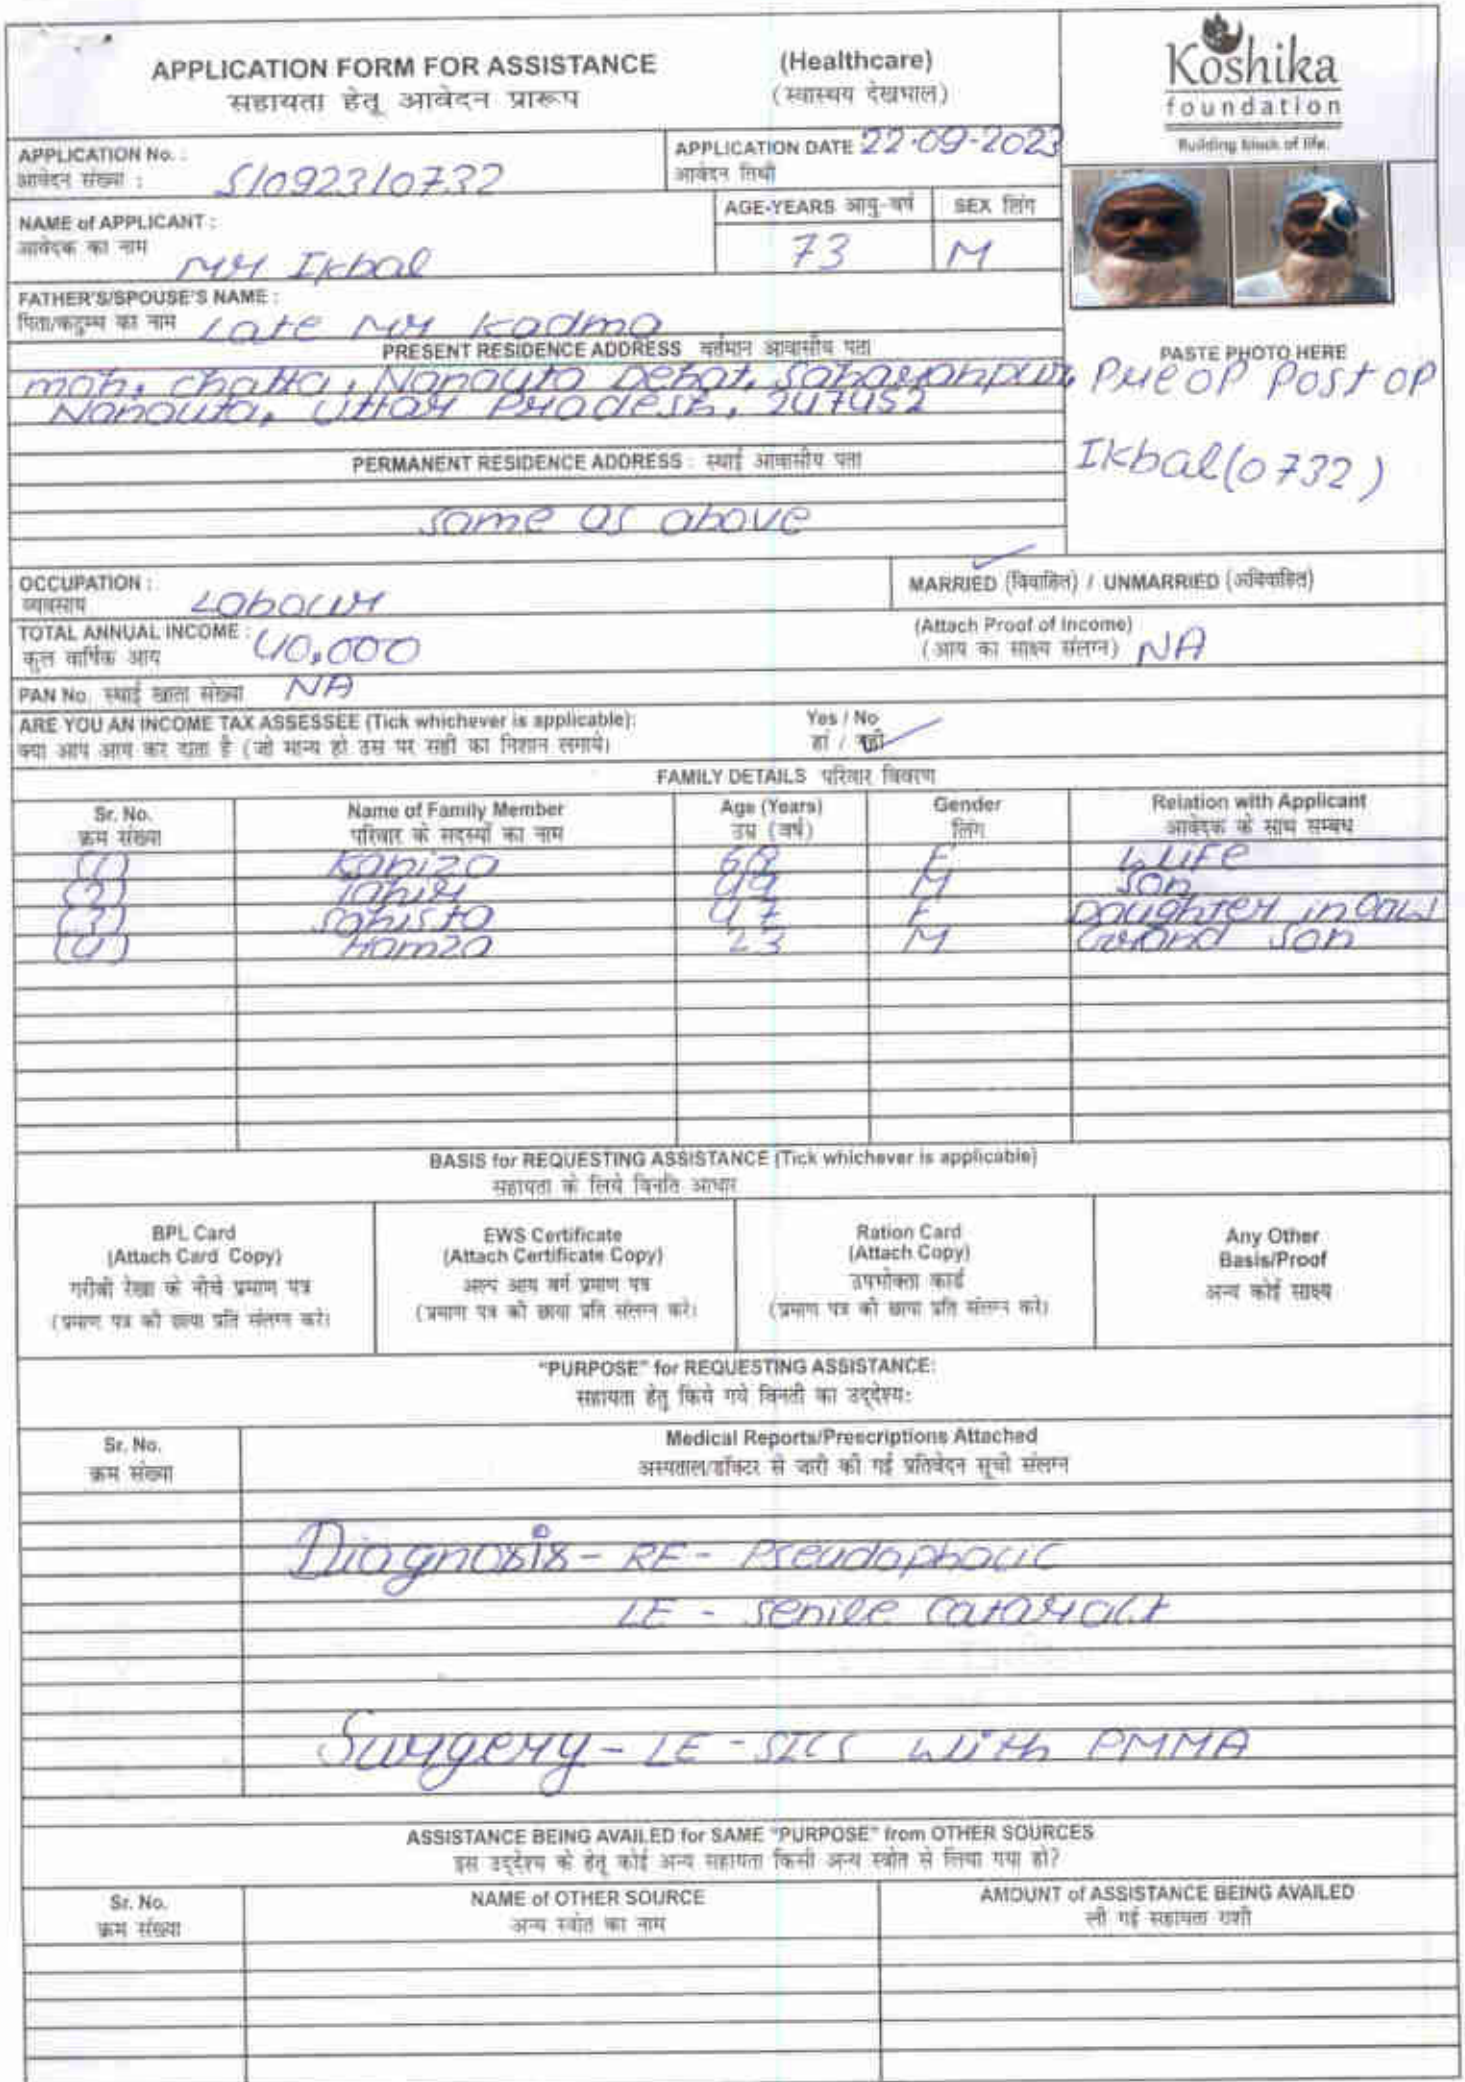 APPLICATION FORM FOR ASSISTANCE (Healthcare)
सहायता हेतू आवेदन प्रारूप (स्वास्थय देखभाल)
Koshika
foundation
Building block of life.
APPLICATION No. : S/0923/0732
आवेदन संख्या :
APPLICATION DATE 22-09-2023
आवेदन तिथी
NAME of APPLICANT : Mr Ikbal
आवेदक का नाम
AGE-YEARS आयु-वर्ष 73
SEX लिंग M
FATHER'S/SPOUSE'S NAME : Late Mr Kadma
पिता/कटुम्ब का नाम
PRESENT RESIDENCE ADDRESS वर्तमान आवासीय पता
moh. chatta, Nanauta Dehat, Saharanpur,
Nanauta, Uttar Pradesh, 247452
PASTE PHOTO HERE
Pre OP Post OP
Ikbal (0732)
PERMANENT RESIDENCE ADDRESS : स्थाई आवासीय पता
same as above
OCCUPATION : Labour
व्यवसाय
MARRIED (विवाहित) / UNMARRIED (अविवाहित)
TOTAL ANNUAL INCOME : 40,000
कुल वार्षिक आय
(Attach Proof of Income)
(आय का साक्ष्य संलग्न) NA
PAN No. स्थाई खाता संख्या NA
ARE YOU AN INCOME TAX ASSESSEE (Tick whichever is applicable): Yes / No
क्या आप आय कर दाता है (जो मान्य हो उस पर सही का निशान लगाये। हां / नहीं
FAMILY DETAILS परिवार विवरण
Sr. No. Name of Family Member Age (Years) Gender Relation with Applicant
क्रम संख्या परिवार के सदस्यों का नाम उम्र (वर्ष) लिंग आवेदक के साथ सम्बध
(1) Kaniza F Wife
(2) Tahir M Son
(3) Sahista 47 F Daughter in law
(4) Hamza 23 M Grand Son
BASIS for REQUESTING ASSISTANCE (Tick whichever is applicable)
सहायता के लिये विनति आधार
BPL Card
(Attach Card Copy)
गरीबी रेखा के नीचे प्रमाण पत्र
(प्रमाण पत्र की छाया प्रति संलग्न करे।
EWS Certificate
(Attach Certificate Copy)
अल्प आय वर्ग प्रमाण पत्र
(प्रमाण पत्र की छाया प्रति संलग्न करे।
Ration Card
(Attach Copy)
उपभोक्ता कार्ड
(प्रमाण पत्र की छाया प्रति संलग्न करे।
Any Other
Basis/Proof
अन्य कोई साक्ष्य
"PURPOSE" for REQUESTING ASSISTANCE:
सहायता हेतु किये गये विनती का उद्देश्य:
Sr. No. Medical Reports/Prescriptions Attached
क्रम संख्या अस्पताल/डॉक्टर से जारी की गई प्रतिवेदन सूची संलग्न
Diagnosis - RE - Pseudophacic
LE - Senile Cataract
Surgery - LE - SICS with PMMA
ASSISTANCE BEING AVAILED for SAME "PURPOSE" from OTHER SOURCES
इस उद्देश्य के हेतू कोई अन्य सहायता किसी अन्य स्त्रोत से लिया गया हो?
Sr. No. NAME of OTHER SOURCE AMOUNT of ASSISTANCE BEING AVAILED
क्रम संख्या अन्य स्त्रोत का नाम ली गई सहायता राशी